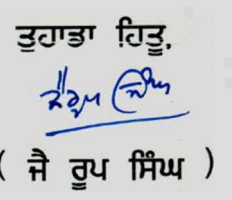 ਤੁਹਾਡਾ ਹਿਤੂ,
ਜੈ ਰੂਪ ਸਿੰਘ
( ਜੈ ਰੂਪ ਸਿੰਘ )